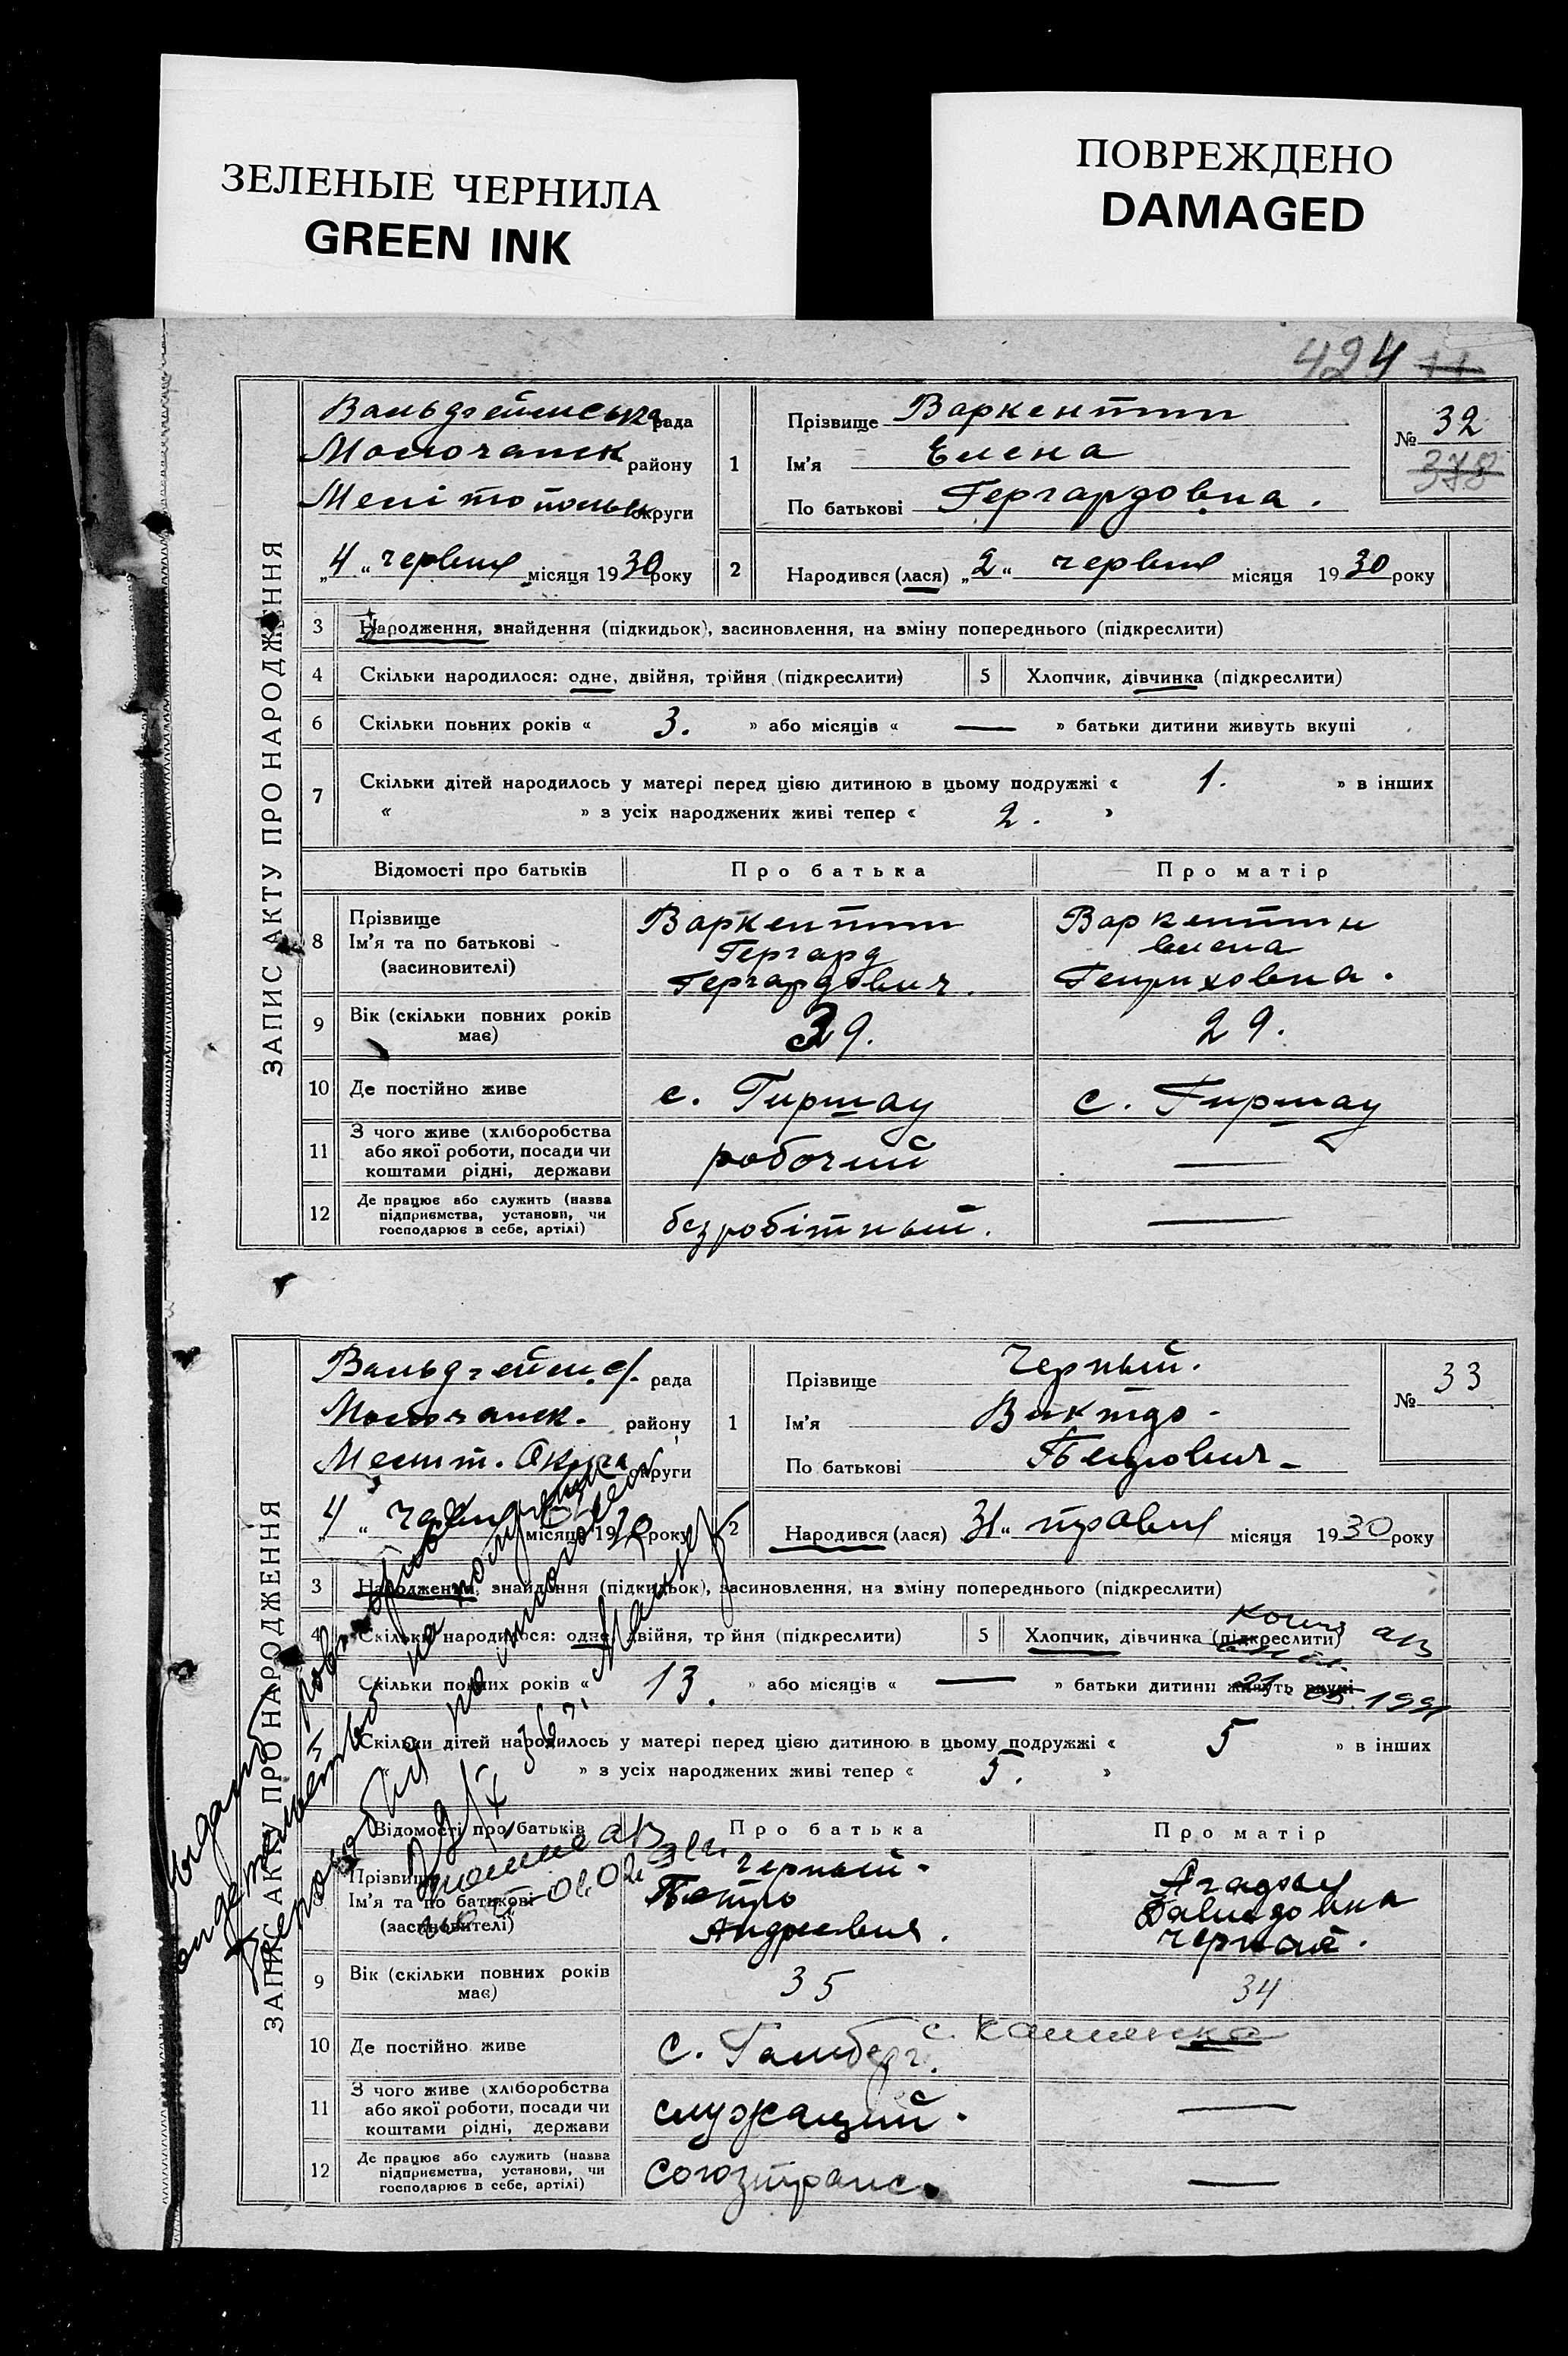 ЗЕЛЕНЫЕ ЧЕРНИЛА
GREEN INK
ПОВРЕЖДЕНО
DAMAGED
424 11
ЗАПИС АКТУ ПРО НАРОДЖЕННЯ
Вальдгеймська рада
Молочанск району
Мелітопольск округи
„4“ червня місяця 1930 року
1
Прізвище Варкентин
Ім'я Елена
По батькові Гергардовна.
№ 32
378
2 Народився (лася) „2“ червня місяця 1930 року
3 Народження, знайдення (підкидьок), засиновлення, на зміну попереднього (підкреслити)
4 Скільки народилося: одне, двійня, трійня (підкреслити)
5 Хлопчик, дівчинка (підкреслити)
6 Скільки повних років « 3. » або місяців « — » батьки дитини живуть вкупі
7 Скільки дітей народилось у матері перед цією дитиною в цьому подружжі « 1. » в інших
« » з усіх народжених живі тепер « 2. »
Відомості про батьків Про батька Про матір
8 Прізвище
Ім'я та по батькові
(засиновителі)
Варкентин
Гергард
Гергардович.
Варкентин
Елена
Генриховна.
9 Вік (скільки повних років має) 39. 29.
10 Де постійно живе с. Гиршау с. Гиршау
11 З чого живе (хліборобства
або якої роботи, посади чи
коштами рідні, держави
робочий —
12 Де працює або служить (назва
підприємства, установи, чи
господарює в себе, артілі)
безробітный. —
ЗАПИС АКТУ ПРО НАРОДЖЕННЯ
Вальдгейм. с/. рада
Молочанск. району
Мелит. Округа округи
„4“ місяця 1930 року
1
Прізвище Черный.
Ім'я
По батькові Петрович
№ 33
2 Народився (лася) 31“ травня місяця 1930 року
3 Народження, знайдення (підкидьок), засиновлення, на зміну попереднього (підкреслити)
4 Скільки народилося: одне, двійня, трійня (підкреслити)
5 Хлопчик, дівчинка (підкреслити)
Скільки повних років « 13. » або місяців « — » батьки дитини живуть вкупі
1991
Скільки дітей народилось у матері перед цією дитиною в цьому подружжі « 5 » в інших
» з усіх народжених живі тепер « 5. »
Відомості про батьків Про батька Про матір
Прізвище
Ім'я та по батькові
(засиновителі)
Черный.
Петро
Андреевич.
Давидовна
Черная.
9 Вік (скільки повних років має) 35 34
10 Де постійно живе с. Гамберг. с. Каменка
11 З чого живе (хліборобства
або якої роботи, посади чи
коштами рідні, держави
служащий. —
12 Де працює або служить (назва
підприємства, установи, чи
господарює в себе, артілі)
Союзтранс. —